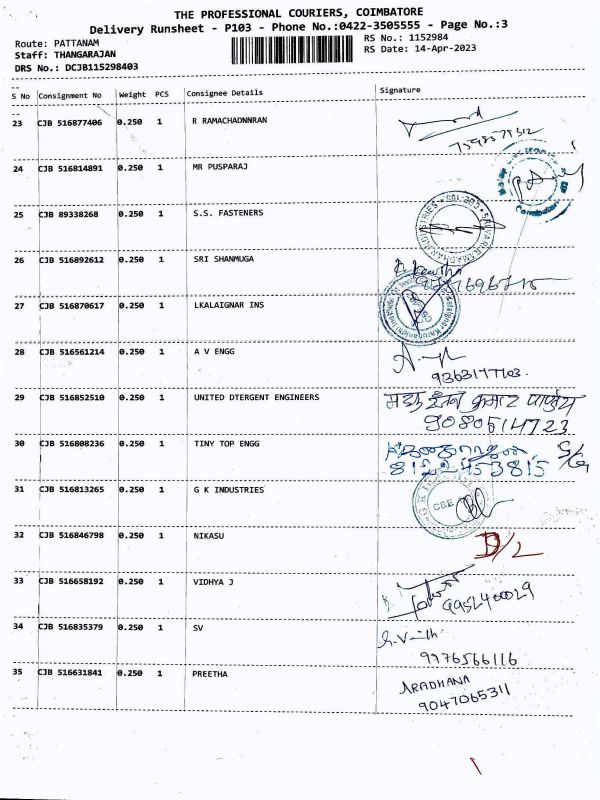 THE PROFESSIONAL COURIERS, COIMBATORE
Delivery Runsheet - P103 - Phone No.:0422-3505555 - Page No.:3
Route: PATTANAM
RS No.: 1152984
Staff: THANGARAJAN
RS Date: 14-Apr-2023
DRS No.: DCJB115298403
S No Consignment No Weight PCS Consignee Details Signature
23 CJB 516877406 0.250 1 R RAMACHADNNRAN
24 CJB 516814891 0.250 1 MR PUSPARAJ
25 CJB 89338268 0.250 1 S.S. FASTENERS
26 CJB 516892612 0.250 1 SRI SHANMUGA
27 CJB 516870617 0.250 1 LKALAIGNAR INS
28 CJB 516561214 0.250 1 A V ENGG
29 CJB 516852510 0.250 1 UNITED DTERGENT ENGINEERS
9080514723
30 CJB 516808236 0.250 1 TINY TOP ENGG
8122453815
31 CJB 516813265 0.250 1 G K INDUSTRIES
32 CJB 516846798 0.250 1 NIKASU D/L
33 CJB 516658192 0.250 1 VIDHYA J
34 CJB 516835379 0.250 1 SV
9976566116
35 CJB 516631841 0.250 1 PREETHA ARADHANA
9047065311